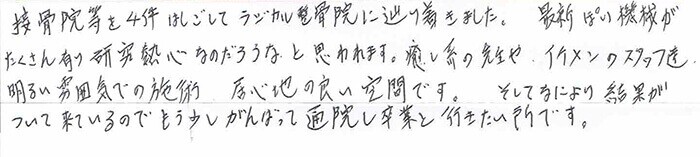 接骨院等を4件はしごしてラジカル整骨院に辿り着きました。 最新ぽい機械が
たくさん有り研究熱心なのだろうな と思われます。癒し系の先生や、イケメンのスタッフ達、
明るい雰囲気での施術 居心地の良い空間です。 そしてなにより結果が
ついて来ているのでもう少しがんばって通院し卒業と行きたい所です。